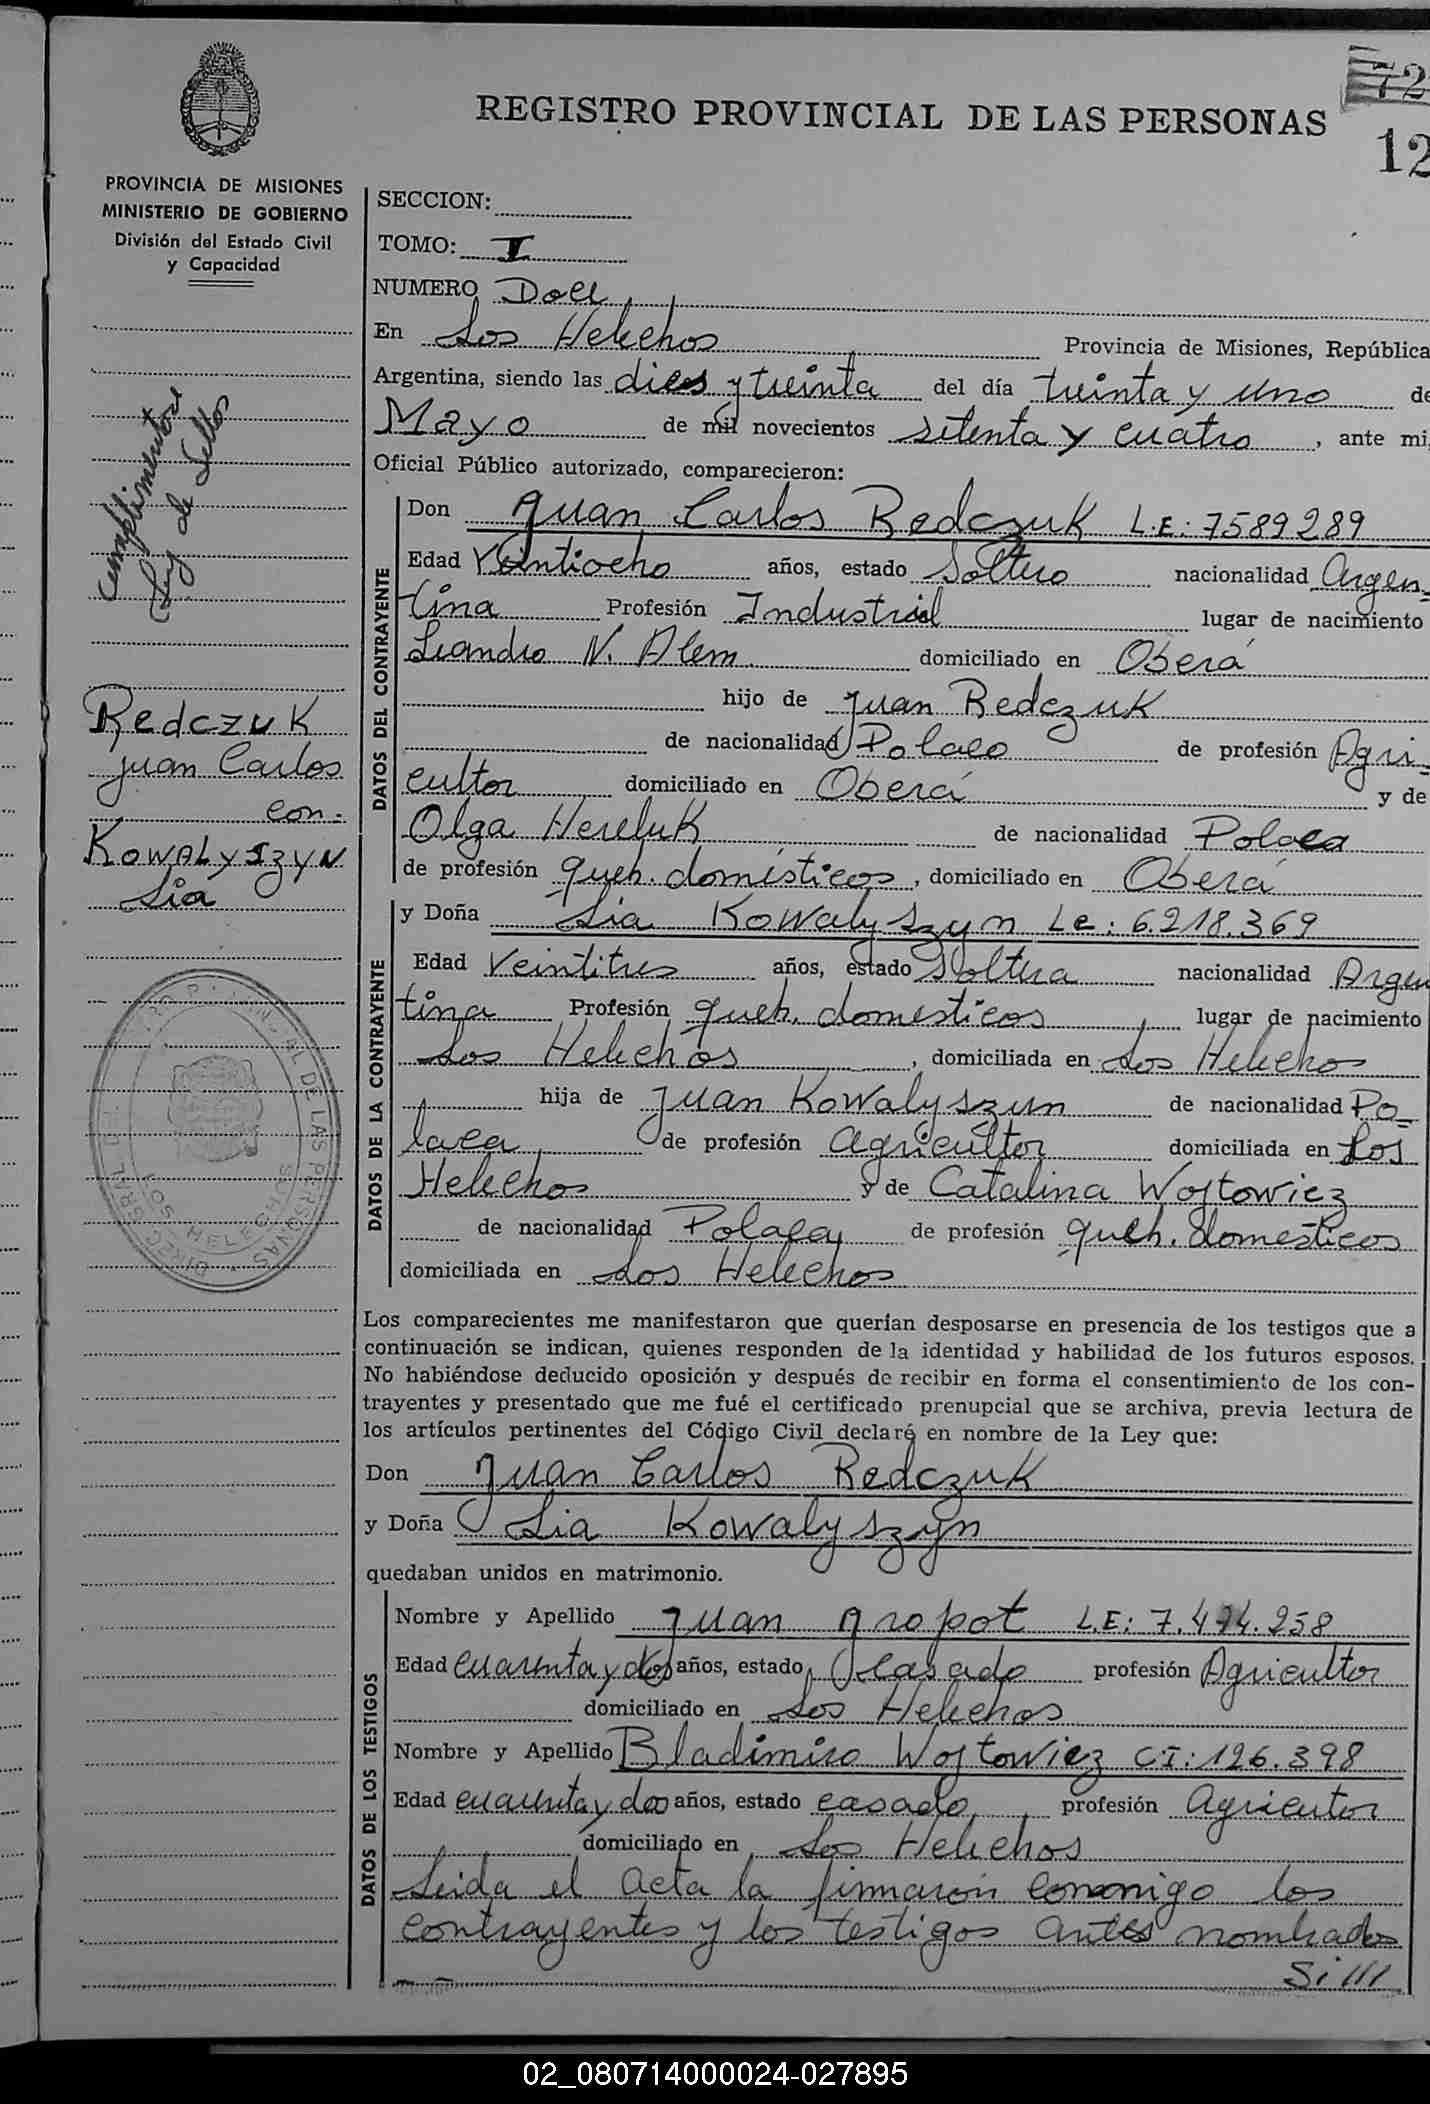 72
REGISTRO PROVINCIAL DE LAS PERSONAS
12
PROVINCIA DE MISIONES
MINISTERIO DE GOBIERNO
División del Estado Civil
y Capacidad
SECCION:
TOMO: I
NUMERO Doce
En Los Helechos Provincia de Misiones, República
Argentina, siendo las dies y treinta del día treinta y uno de
Mayo de mil novecientos setenta y cuatro, ante mi,
Oficial Público autorizado, comparecieron:
cumplimentose
Ley de Sellos
Redczuk
Juan Carlos
con.
Kowalyszyn
Lia
DATOS DEL CONTRAYENTE
Don Juan Carlos Redczuk L.E: 7589289
Edad Veintiocho años, estado Soltero nacionalidad Argen-
tina Profesión Industrial lugar de nacimiento
Leandro N. Alem domiciliado en Oberá
hijo de Juan Redczuk
de nacionalidad Polaco de profesión Agri-
cultor domiciliado en Oberá y de
Olga Hereluk de nacionalidad Polaca
de profesión queh. domésticos, domiciliado en Oberá
DATOS DE LA CONTRAYENTE
y Doña Lia Kowalyszyn Le: 6.218.369
Edad Veintitres años, estado Soltera nacionalidad Argen
tina Profesión queh. domesticos lugar de nacimiento
Los Helechos, domiciliada en Los Helechos
hija de Juan Kowalyszyn de nacionalidad Po-
laca de profesión Agricultor domiciliada en Los
Helechos y de Catalina Wojtowicz
de nacionalidad Polaca de profesión queh. domesticos
domiciliada en Los Helechos
DIREC. GRAL. DEL REGISTRO PROVINCIAL DE LAS PERSONAS
LOS HELECHOS
Los comparecientes me manifestaron que querían desposarse en presencia de los testigos que a
continuación se indican, quienes responden de la identidad y habilidad de los futuros esposos.
No habiéndose deducido oposición y después de recibir en forma el consentimiento de los con-
trayentes y presentado que me fué el certificado prenupcial que se archiva, previa lectura de
los artículos pertinentes del Código Civil declaré en nombre de la Ley que:
Don Juan Carlos Redczuk
y Doña Lia Kowalyszyn
quedaban unidos en matrimonio.
DATOS DE LOS TESTIGOS
Nombre y Apellido Juan Aropot L.E: 7.474.258
Edad cuarenta y dos años, estado casado profesión Agricultor
domiciliado en Los Helechos
Nombre y Apellido Bladimiro Wojtowicz C.I: 126.398
Edad cuarenta y dos años, estado casado profesión Agricutor
domiciliado en Los Helechos
Leida el acta la firmaron conmigo los
contrayentes y los testigos antes nombrados
Si///
02_080714000024-027895